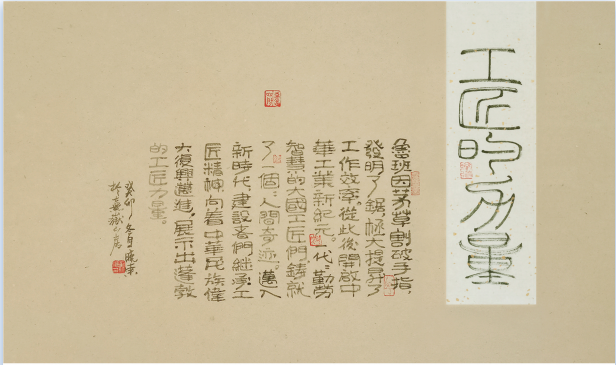 工匠的力量
魯班因茅草割破手指,
發明了鋸,極大提昇了
工作效率。從此後開啟中
華工業新紀元。一代代勤勞
智慧的大國工匠們,鑄就
了一個個人間奇迹,邁入
新時代,建設者們繼承工
匠精神,向着中華民族偉
大復興邁進,展示出蓬勃
的工匠力量。
癸卯冬月曉東